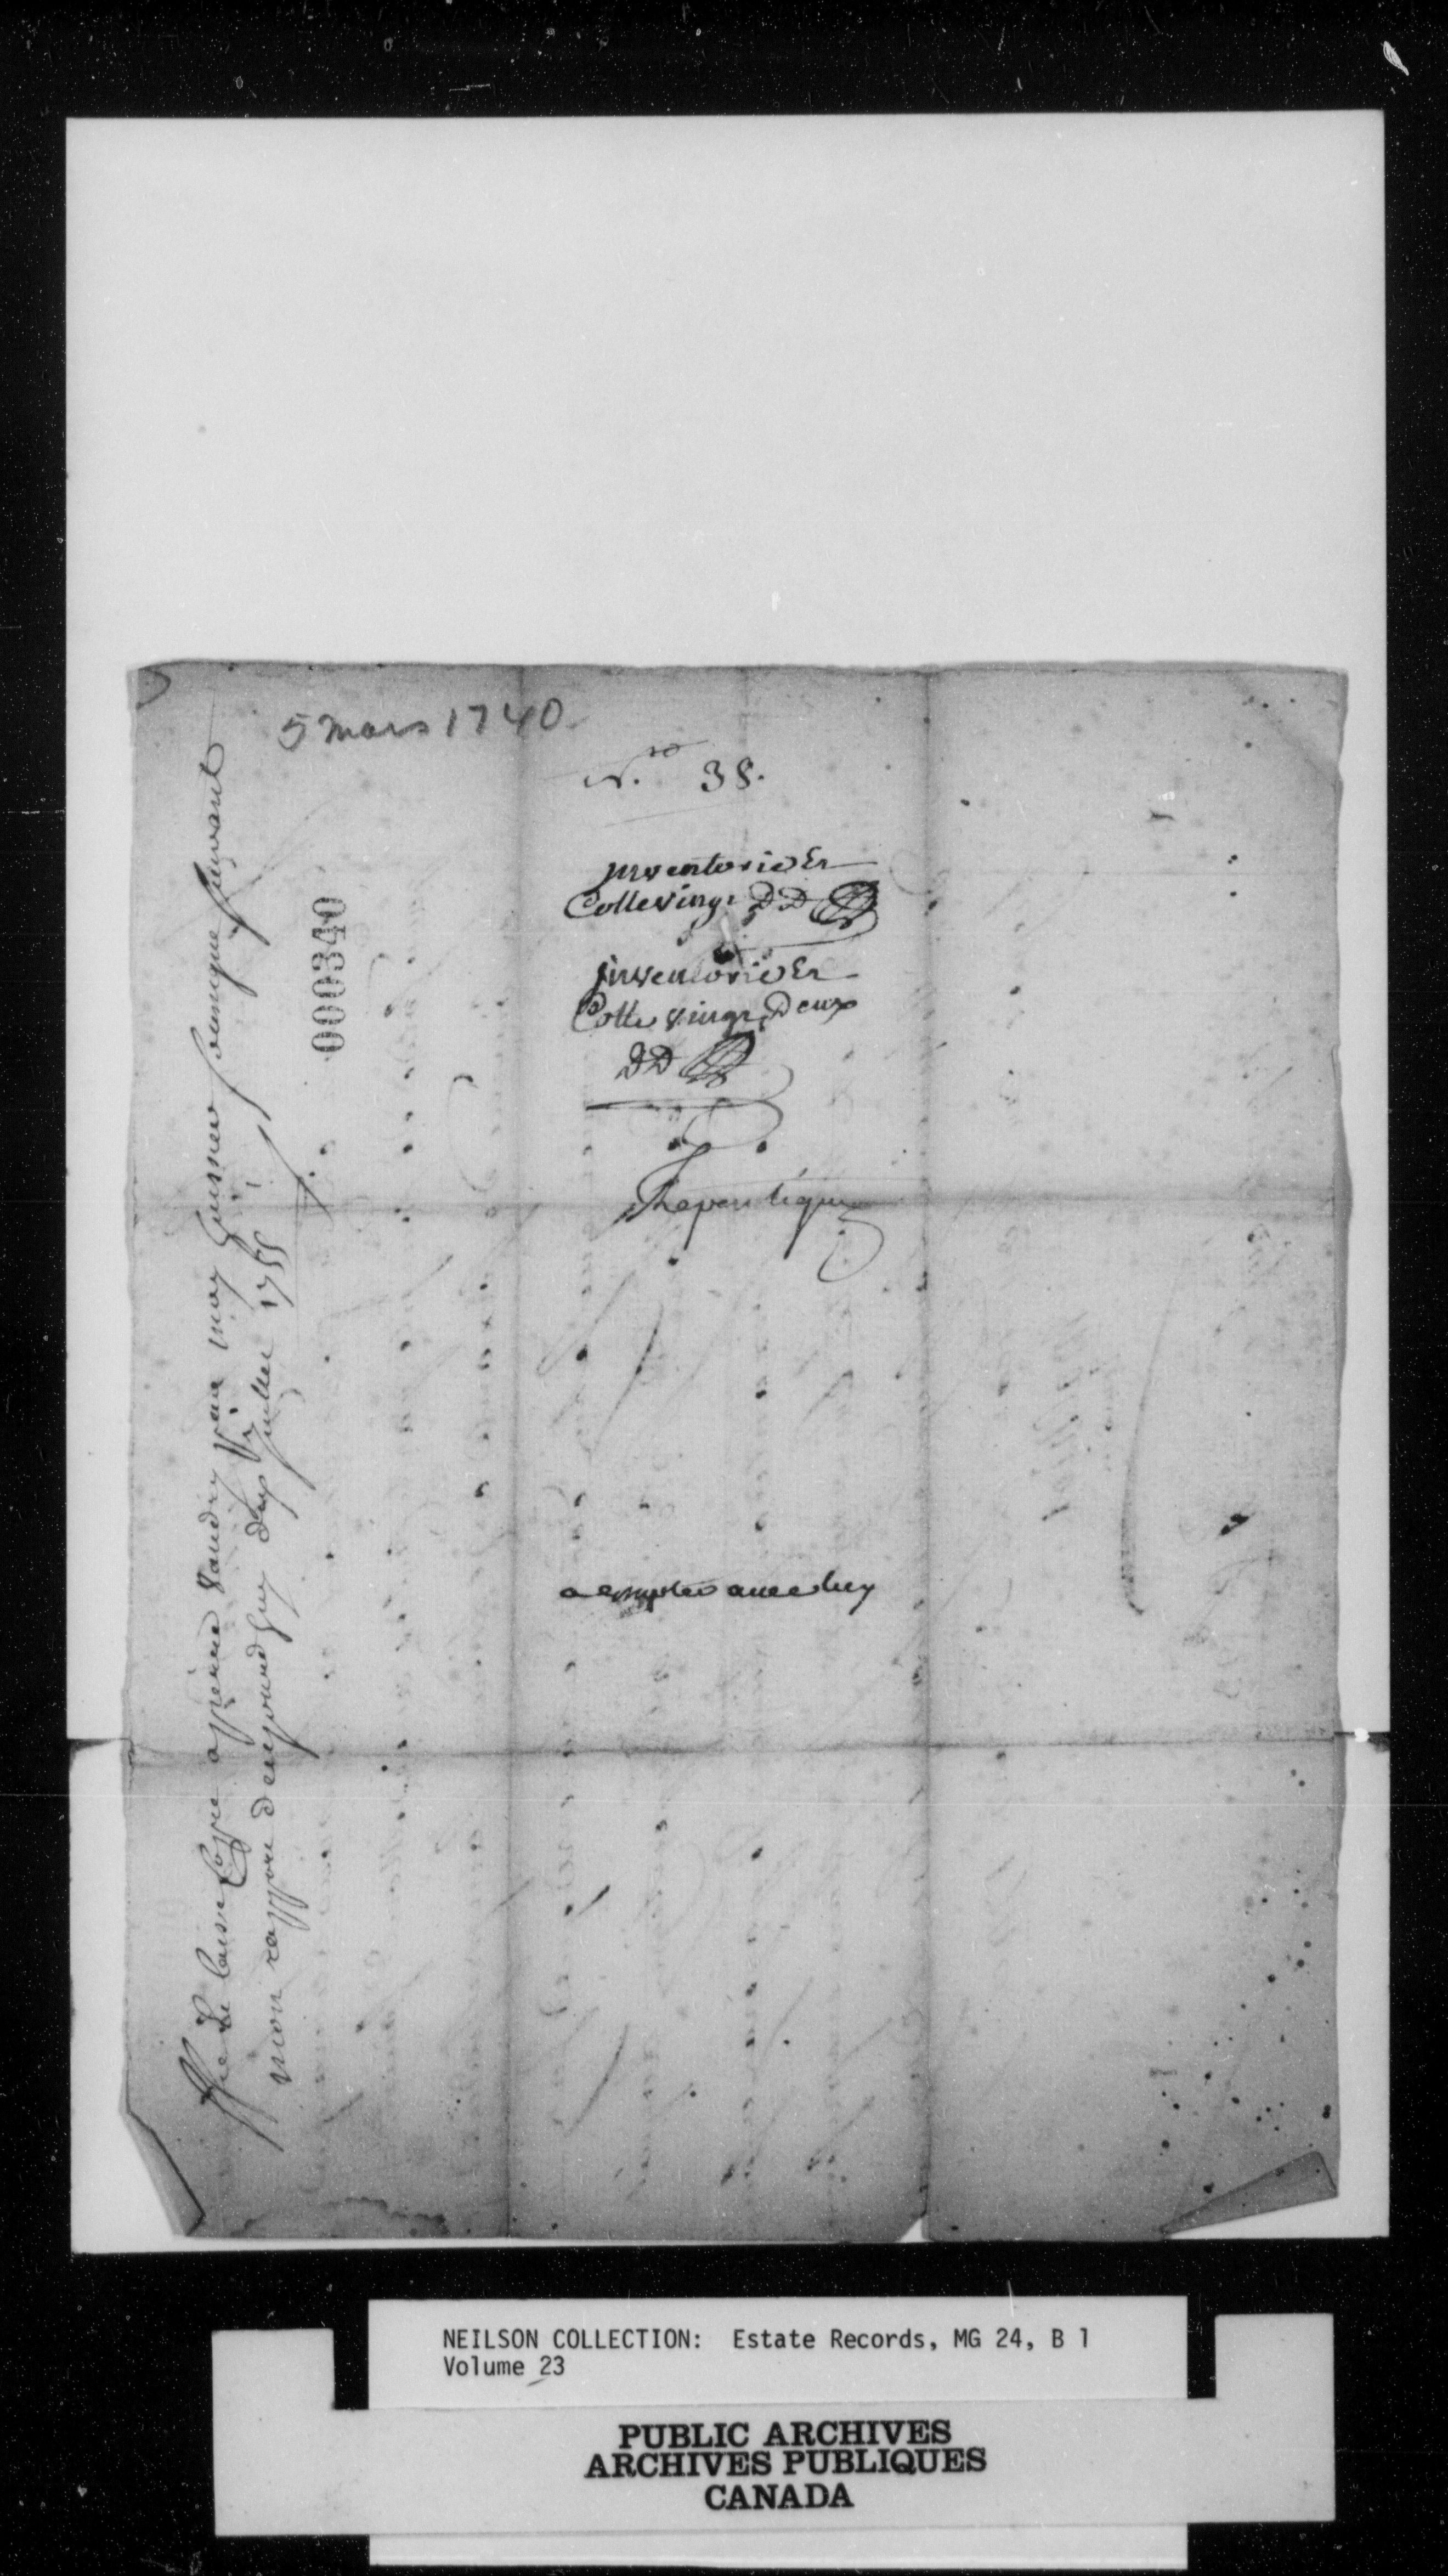 5 mars 1740
N.ro 38.
Inventorié Et
Cotté vingt DD
Inventorié Et
Cotté vingt Deux
DD
Repentigny
a compter avec luy
000340
Laissé Copie a pierre Vaudry par moy huissier soussigné suivant
mon rapport de ce jourd'huy dix juillet 1755
NEILSON COLLECTION: Estate Records, MG 24, B 1
Volume 23
PUBLIC ARCHIVES
ARCHIVES PUBLIQUES
CANADA